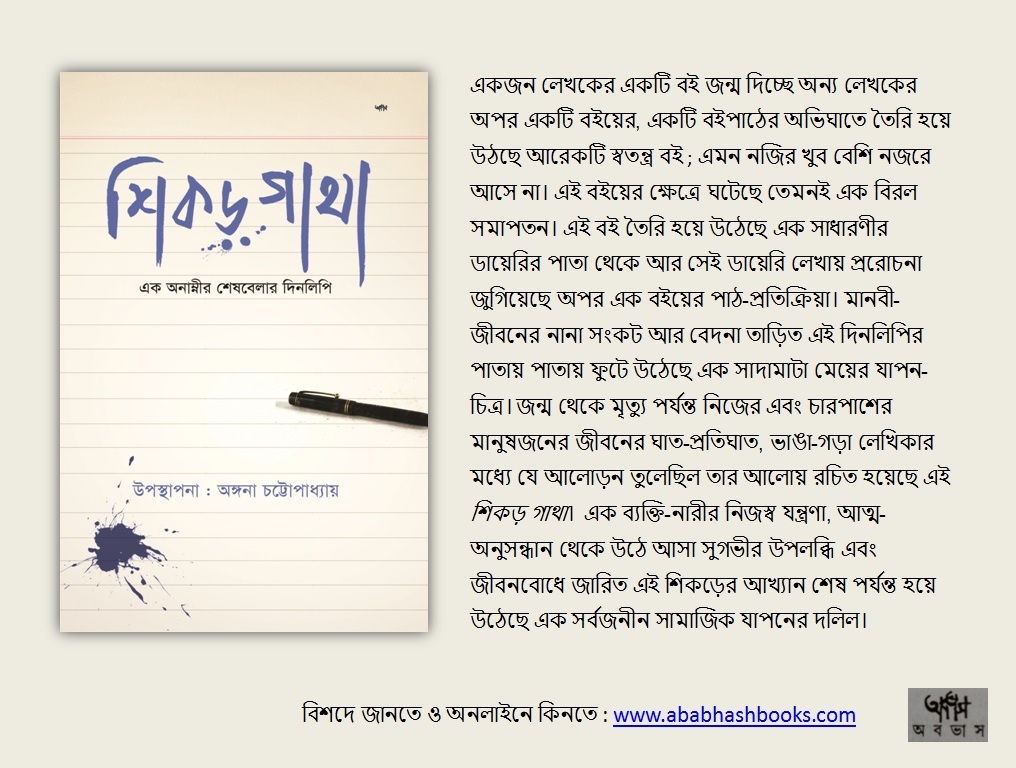 শিকড়গাথা
এক অনাম্নীর শেষবেলার দিনলিপি
উপস্থাপনা : অঙ্গনা চট্টোপাধ্যায়
একজন লেখকের একটি বই জন্ম দিচ্ছে অন্য লেখকের
অপর একটি বইয়ের, একটি বইপাঠের অভিঘাতে তৈরি হয়ে
উঠছে আরেকটি স্বতন্ত্র বই; এমন নজির খুব বেশি নজরে
আসে না। এই বইয়ের ক্ষেত্রে ঘটেছে তেমনই এক বিরল
সমাপতন। এই বই তৈরি হয়ে উঠেছে এক সাধারণীর
ডায়েরির পাতা থেকে আর সেই ডায়েরি লেখায় প্ররোচনা
জুগিয়েছে অপর এক বইয়ের পাঠ-প্রতিক্রিয়া। মানবী-
জীবনের নানা সংকট আর বেদনা তাড়িত এই দিনলিপির
পাতায় পাতায় ফুটে উঠেছে এক সাদামাটা মেয়ের যাপন-
চিত্র। জন্ম থেকে মৃত্যু পর্যন্ত নিজের এবং চারপাশের
মানুষজনের জীবনের ঘাত-প্রতিঘাত, ভাঙা-গড়া লেখিকার
মধ্যে যে আলোড়ন তুলেছিল তার আলোয় রচিত হয়েছে এই
শিকড় গাথা। এক ব্যক্তি-নারীর নিজস্ব যন্ত্রণা, আত্ম-
অনুসন্ধান থেকে উঠে আসা সুগভীর উপলব্ধি এবং
জীবনবোধে জারিত এই শিকড়ের আখ্যান শেষ পর্যন্ত হয়ে
উঠেছে এক সর্বজনীন সামাজিক যাপনের দলিল।
বিশদে জানতে ও অনলাইনে কিনতে : www.ababhashbooks.com
অ ব ভা স